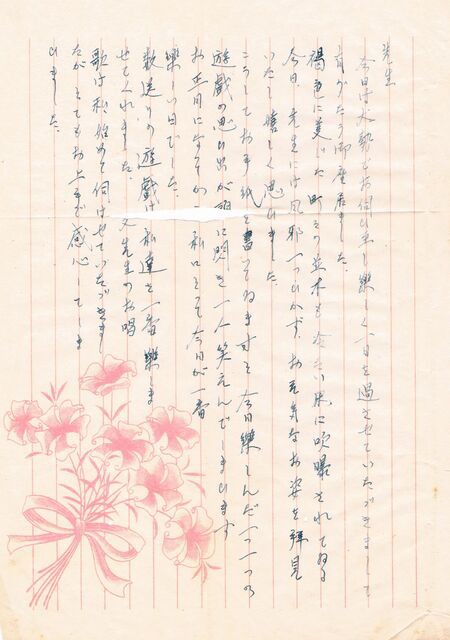 先生
今日は大勢でお伺ひ申し楽しく一日を過させていたゞきまして
有がたう御座居ました。
褐色に変じた町々の並木も冷たい風に吹曝されてゐる
今日、先生には風邪一つひかず、お元気なお姿を拝見
いたし嬉しく思ひました。
こうしてお手紙を書いてゐますと今日楽しんだ一つ一つの
遊戯の思ひ出が頭に閃き一人笑えんでしまひます
お正月になってから私にとって今日が一番
楽しい日でした。
数送りの遊戯は私達を一番楽しま
せてくれました。又先生のお唱
歌は私始めて伺はせていたゞきまし
たが、とてもお上手で感心してしま
ひました。